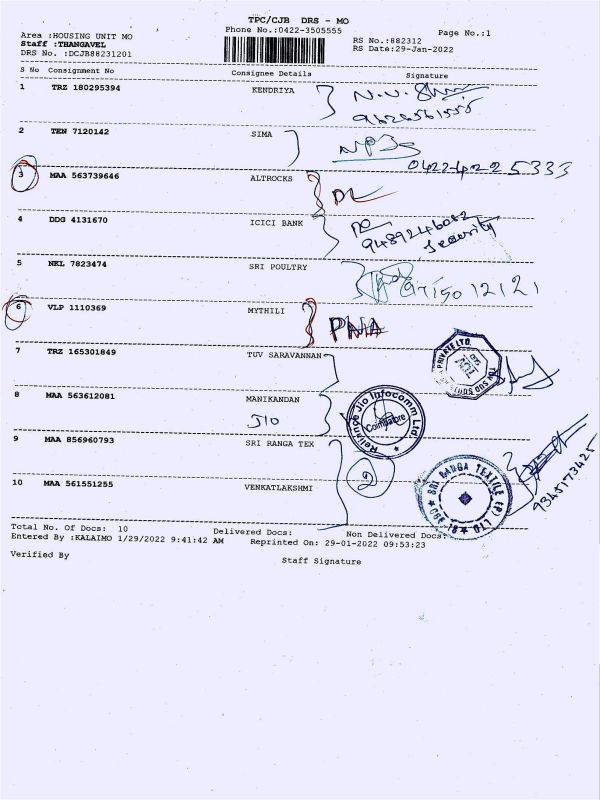 TPC/CJB DRS - MO
Area :HOUSING UNIT MO Phone No.:0422-3505555 Page No.:1
Staff :THANGAVEL RS No.:882312
DRS No. :DCJB88231201 RS Date:29-Jan-2022
S No Consignment No Consignee Details Signature
1 TRZ 180295394 KENDRIYA
9626561555
2 TEN 7120142 SIMA
04224225333
3 MAA 563739646 ALTROCKS DL
4 DDG 4131670 ICICI BANK
9489246082
Security
5 NKL 7823474 SRI POULTRY
6 VLP 1110369 MYTHILI PNA
7 TRZ 165301849 TUV SARAVANNAN
PRIVATE LTD.
TUV SUD SOUTH
8 MAA 563612081 MANIKANDAN
JIO
Reliance Jio Infocomm Ltd.
Coimbatore
9 MAA 856960793 SRI RANGA TEX
2
SRI RANGA TEXTILE (P) LTD
10 MAA 561551255 VENKATLAKSHMI
9345173425
Total No. of Docs: 10 Delivered Docs: Non Delivered Docs:
Entered By :KALAIMO 1/29/2022 9:41:42 AM Reprinted On: 29-01-2022 09:53:23
Verified By Staff Signature